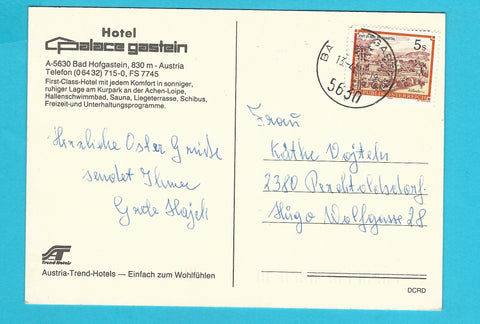 Hotel
Palace gastein
A-5630 Bad Hofgastein, 830 m - Austria
Telefon (06432) 715-0, FS 7745
First-Class-Hotel mit jedem Komfort in sonniger,
ruhiger Lage am Kurpark an der Achen-Loipe,
Hallenschwimmbad, Sauna, Liegeterrasse, Schibus,
Freizeit- und Unterhaltungsprogramme.
Herzliche Oster Grüße
sendet Ihnen
Grete Hajek
Trend Hotels
Austria-Trend-Hotels — Einfach zum Wohlfühlen
5s
REPUBLIK ÖSTERREICH
BA
5630
Frau
Käthe Vojteln
2380 Perchtoldsdorf
Hugo Wolfgasse 28
DCRD